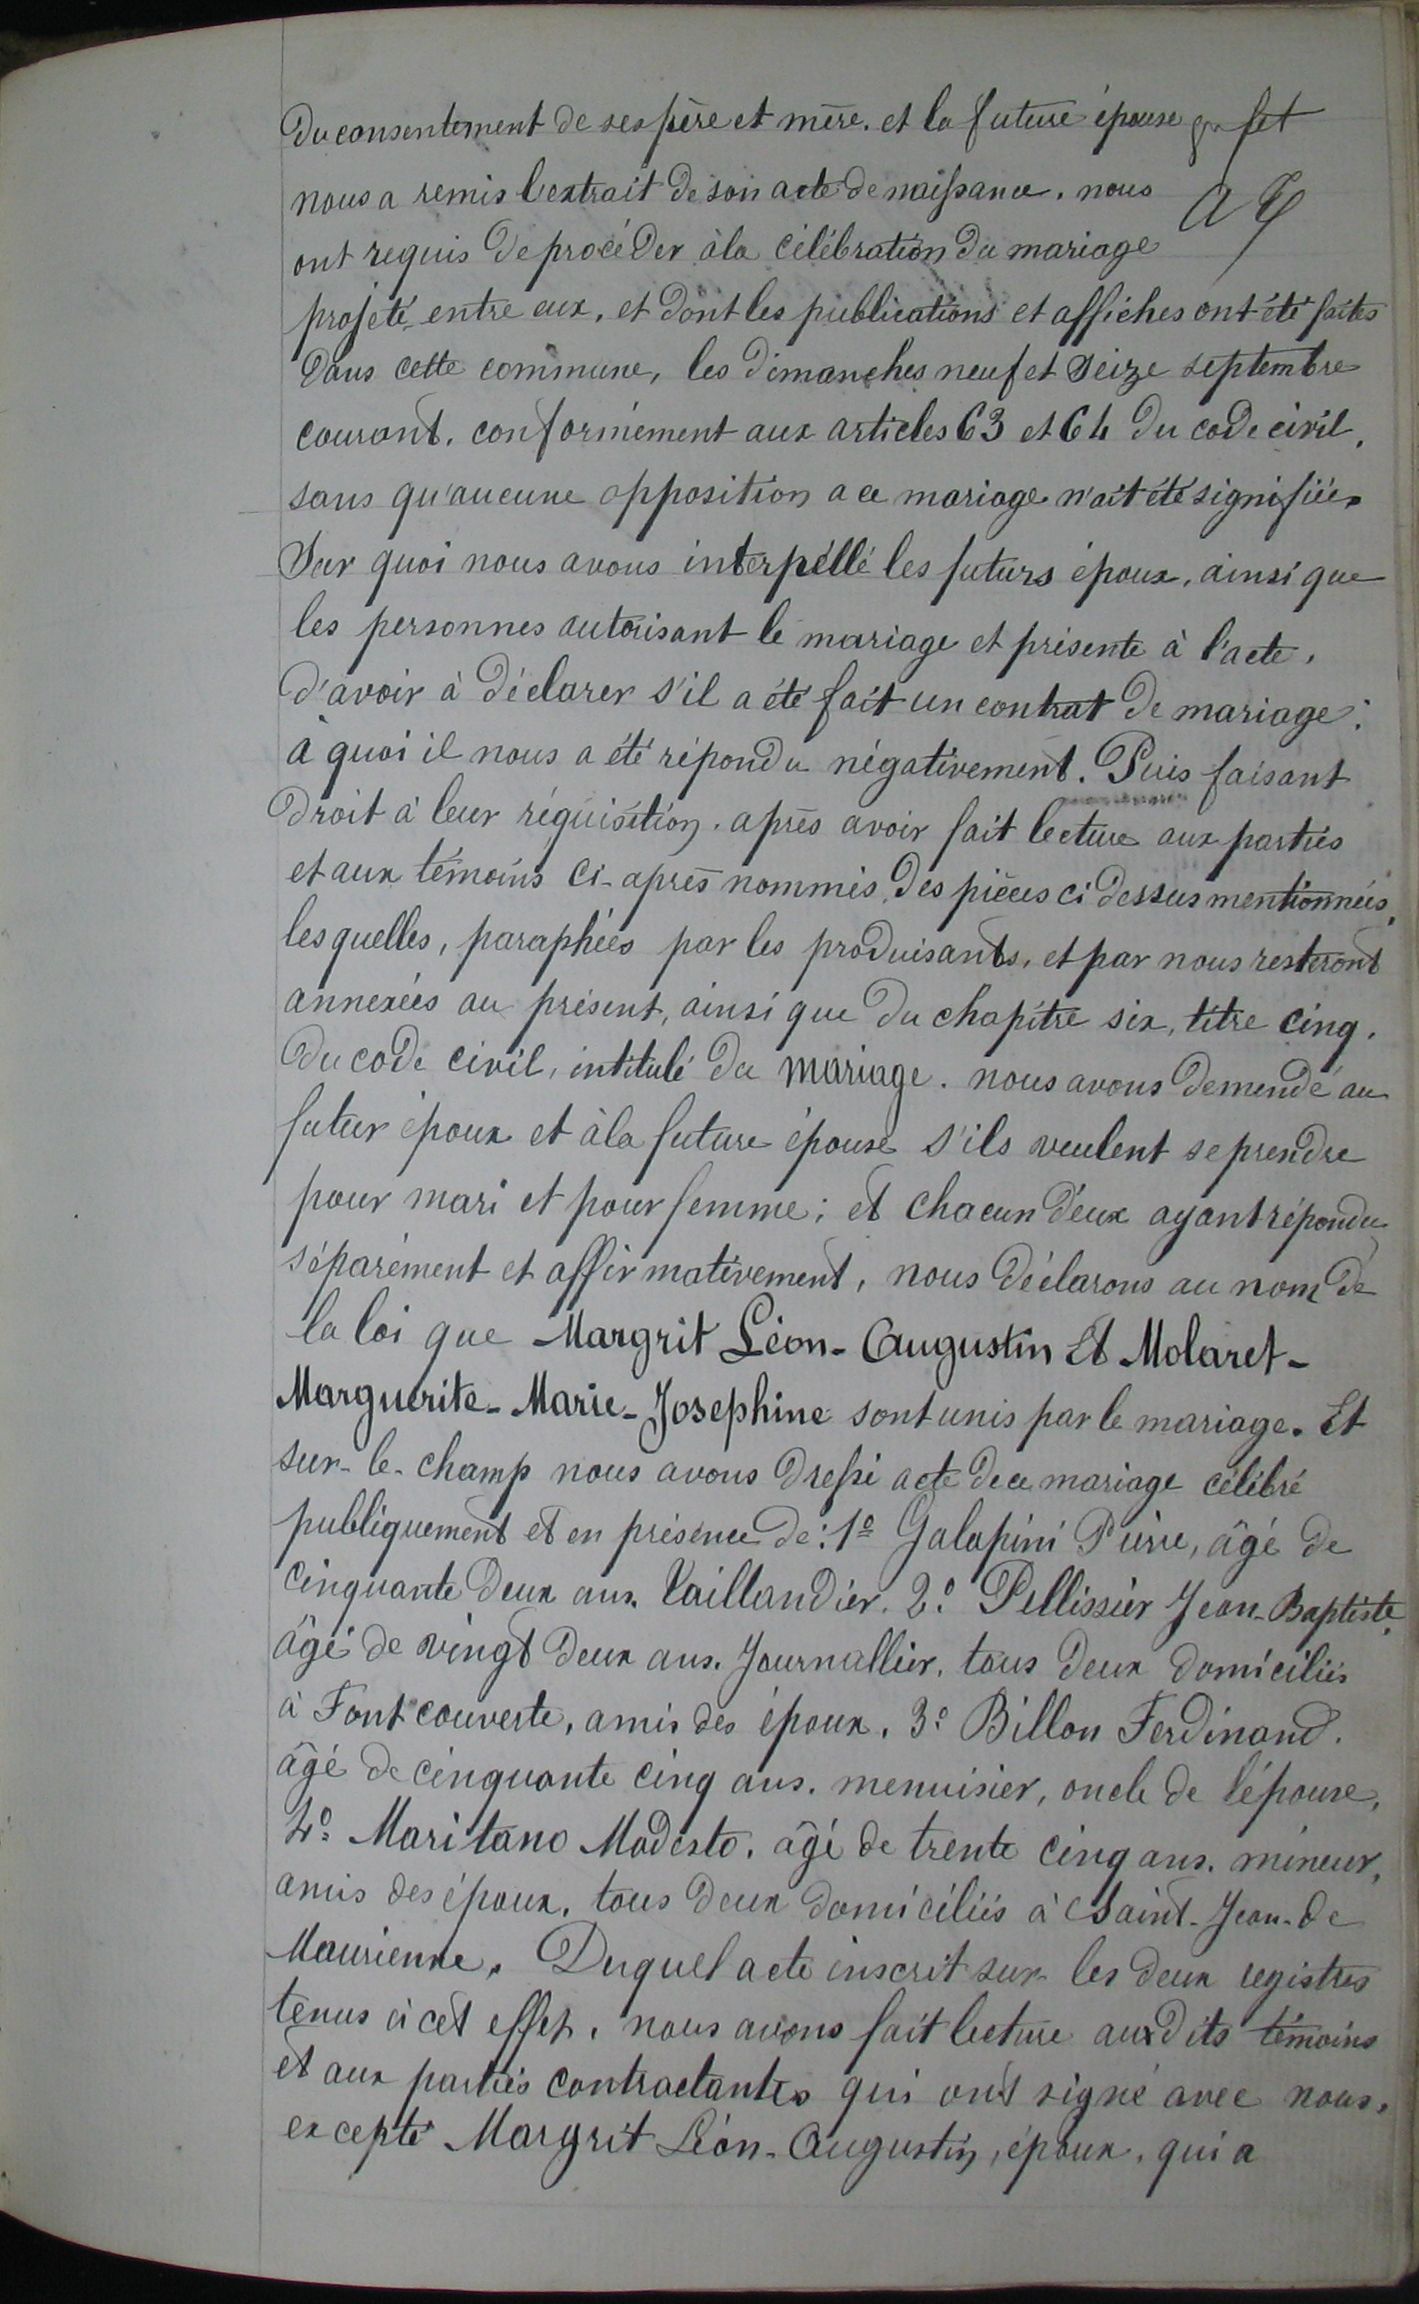 Du consentement de ses père et mère. et la future épouse
nous a remis l'extrait de son acte de naissance. nous
ont requis de procéder à la célébration du mariage
projeté entre eux, et dont les publications et affiches ont été faites
dans cette commune, les dimanches neuf et seize septembre
courant. conformément aux articles 63 et 64 du code civil.
sans qu'aucune opposition a ce mariage n'ait été signifiée.
Sur quoi nous avons interpéllé les futurs époux, ainsi que
les personnes autorisant le mariage et présente à l'acte,
d'avoir à déclarer s'il a été fait un contrat de mariage;
à quoi il nous a été répondu négativement. Puis faisant
droit à leur réquisition. après avoir fait lecture aux parties
et aux témoins ci-après nommés, des pièces ci dessus mentionnées,
les quelles, paraphées par les produisants, et par nous resteront
annexées au présent, ainsi que du chapitre six, titre cinq.
du code civil, intitulé du mariage. nous avons demendé au
futur époux et à la future épouse s'ils veulent se prendre
pour mari et pour femme; et chacun d'eux ayant répondu
séparément et affirmativement, nous déclarons au nom de
la loi que Margrit Léon-Augustin Et Molaret-
Marguerite-Marie-Josephine sont unis par le mariage. Et
sur-le-champ nous avons dressé acte de ce mariage célébré
publiquement et en présence de: 1º Galapini Pierre, âgé de
cinquante deux ans. taillandier. 2º Pellissier Jean-Baptiste,
âgé de vingt deux ans. Journallier, tous deux domiciliés
à Fontcouverte, amis des époux. 3º Billon Ferdinand.
âgé de cinquante cinq ans. menuisier, oncle de l'épouse,
4º Maritano Modesto. âgé de trente cinq ans. mineur,
amis des époux, tous deux domiciliés à Saint-Jean-de
Maurienne. Duquel acte inscrit sur les deux registres
tenus à cet effet, nous avons fait lecture aux dits témoins
et aux parties contractantes qui ont signé avec nous,
excepté Margrit Léon-Augustin, époux, qui a